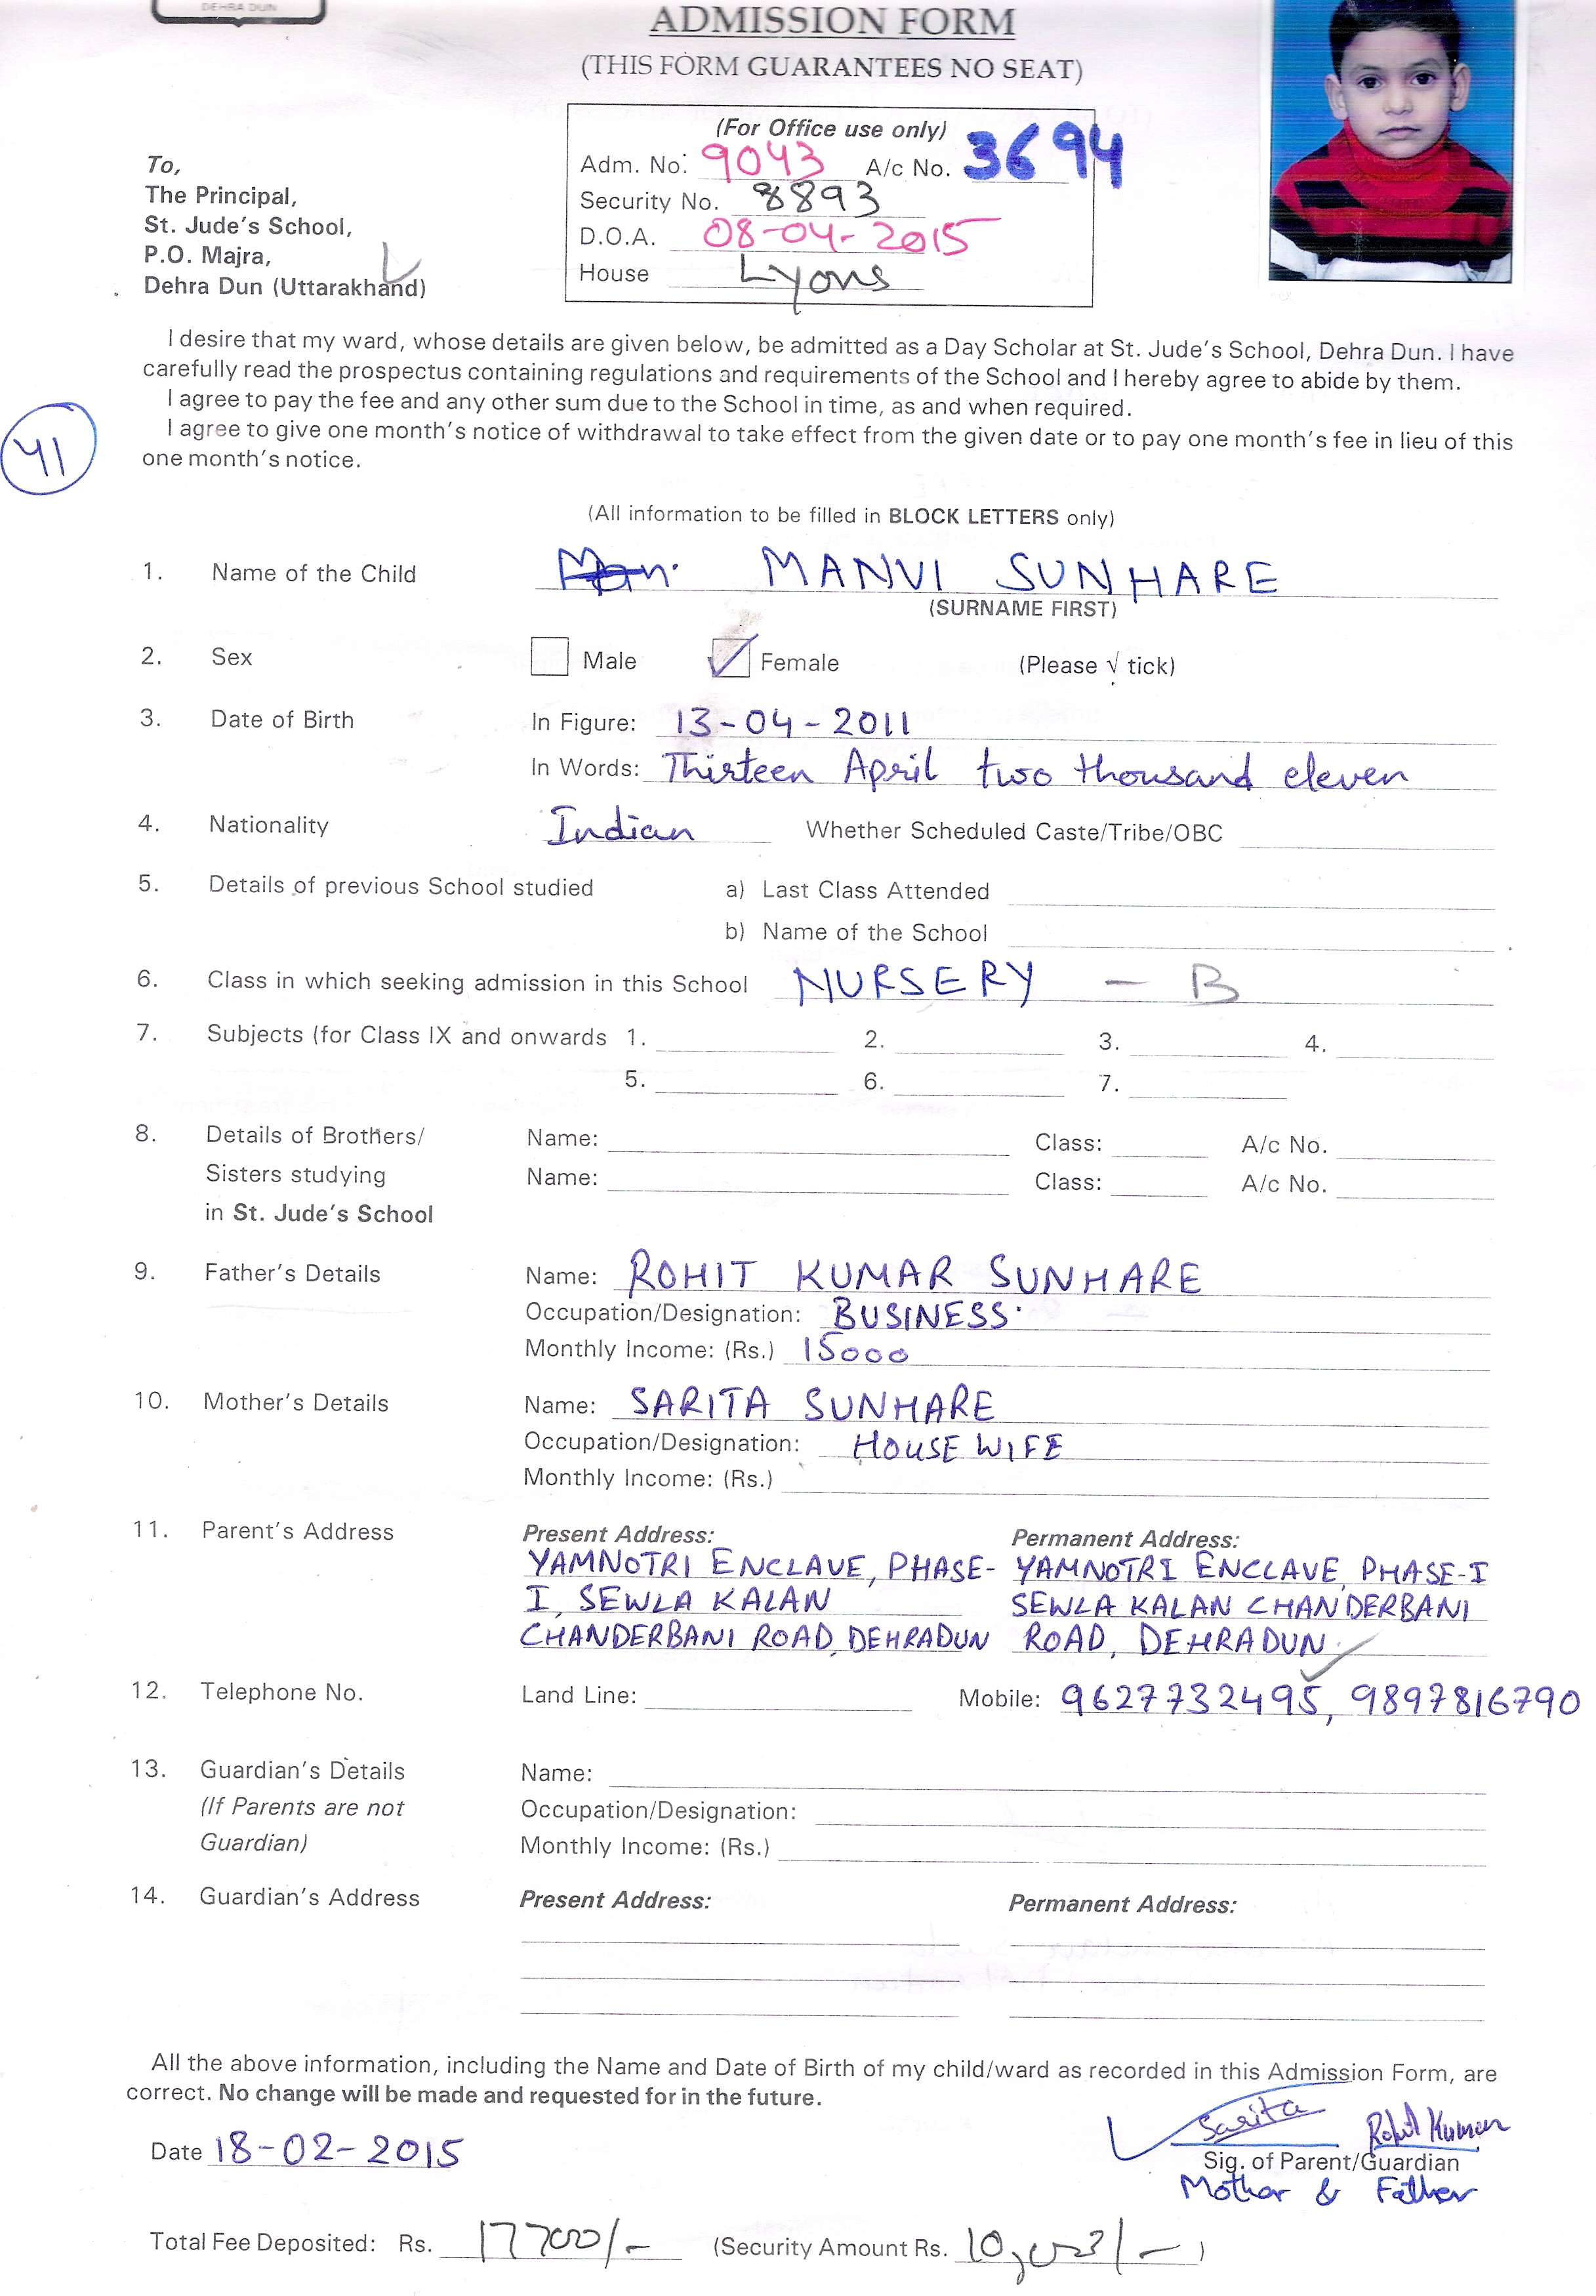 DEHRA DUN
ADMISSION FORM
(THIS FORM GUARANTEES NO SEAT)
(For Office use only)
Adm. No: 9043 A/c No. 3694
Security No. 8893
D.O.A. 08-04-2015
House Lyons
To,
The Principal,
St. Jude's School,
P.O. Majra,
Dehra Dun (Uttarakhand)
I desire that my ward, whose details are given below, be admitted as a Day Scholar at St. Jude's School, Dehra Dun. I have
carefully read the prospectus containing regulations and requirements of the School and I hereby agree to abide by them.
I agree to pay the fee and any other sum due to the School in time, as and when required.
I agree to give one month's notice of withdrawal to take effect from the given date or to pay one month's fee in lieu of this
one month's notice.
41
(All information to be filled in BLOCK LETTERS only)
1. Name of the Child MANVI SUNHARE
(SURNAME FIRST)
2. Sex Male Female (Please √ tick)
3. Date of Birth In Figure: 13-04-2011
In Words: Thirteen April two thousand eleven
4. Nationality Indian Whether Scheduled Caste/Tribe/OBC
5. Details of previous School studied a) Last Class Attended
b) Name of the School
6. Class in which seeking admission in this School NURSERY - B
7. Subjects (for Class IX and onwards 1. 2. 3. 4.
5. 6. 7.
8. Details of Brothers/ Name: Class: A/c No.
Sisters studying Name: Class: A/c No.
in St. Jude's School
9. Father's Details Name: ROHIT KUMAR SUNHARE
Occupation/Designation: BUSINESS.
Monthly Income: (Rs.) 15000
10. Mother's Details Name: SARITA SUNHARE
Occupation/Designation: HOUSE WIFE
Monthly Income: (Rs.)
11. Parent's Address Present Address: Permanent Address:
YAMNOTRI ENCLAVE, PHASE- YAMNOTRI ENCLAVE, PHASE-I
I, SEWLA KALAN SEWLA KALAN CHANDERBANI
CHANDERBANI ROAD, DEHRADUN ROAD, DEHRADUN
12. Telephone No. Land Line: Mobile: 9627732495, 9897816790
13. Guardian's Details Name:
(If Parents are not Occupation/Designation:
Guardian) Monthly Income: (Rs.)
14. Guardian's Address Present Address: Permanent Address:
All the above information, including the Name and Date of Birth of my child/ward as recorded in this Admission Form, are
correct. No change will be made and requested for in the future.
Sarita Rohit Kumar
Date 18-02-2015
Sig. of Parent/Guardian
Mother & Father
Total Fee Deposited: Rs. 17700/- (Security Amount Rs. 10,000/-)